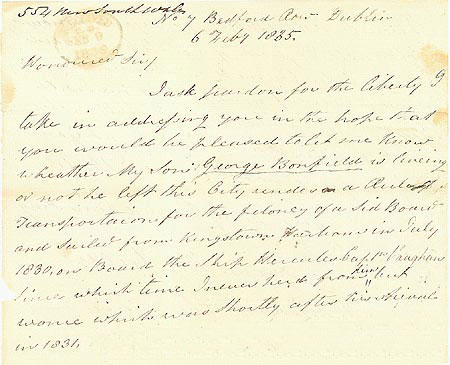 554 New South Wales
No 7 Bedford Row Dublin
6 Feby 1835.
Honoured Sir
I ask pardon for the liberty I
take in addressing you in the hope that
you would be pleased to let me know
wheather My Son George Bonfield is liveing
or not he left this City under a Rule of
Transportacon for the feloney of a Sid Board
and Sailed from Kingstown Harbour in July
1830, on Board the Ship Hercules Captn Vaughan
Since which time I never herd from him but
wonce which was Shortly after his arival
in 1831,